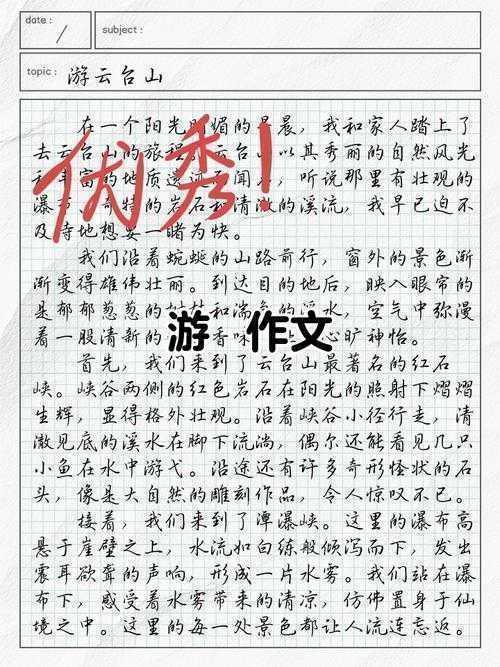 date :
subject :
topic : 游云台山
在一个阳光明媚的早晨，我和家人踏上了
去云台山的旅程。云台山以其秀丽的自然风光
和丰富的地质遗迹而闻名，听说那里有壮观的
瀑布、奇特的岩石和清澈的溪流，我早已迫不
及待地想要一睹为快。
我们沿着蜿蜒的山路前行，窗外的景色渐
渐变得雄伟壮丽。到达目的地后，映入眼帘的
是郁郁葱葱的和湍急的溪水，空气中弥漫
着一股清新的香味心旷神怡。
首先，我们来到了云台山最著名的红石
峡。峡谷两侧的红色岩石在阳光的照射下熠熠
生辉，显得格外壮观。沿着峡谷小径行走，清
澈见底的溪水在脚下流淌，偶尔还能看见几只
小鱼在水中游弋。沿途还有许多奇形怪状的石
头，像是大自然的雕刻作品，令人惊叹不已。
接着，我们来到了潭瀑峡。这里的瀑布高
悬于崖壁之上，水流如白练般倾泻而下，发出
震耳欲聋的声响，形成一片水雾。我们站在瀑
布下，感受着水雾带来的清凉，仿佛置身于仙
境之中。这里的每一处景色都让人流连忘返。
优秀！
游 作文